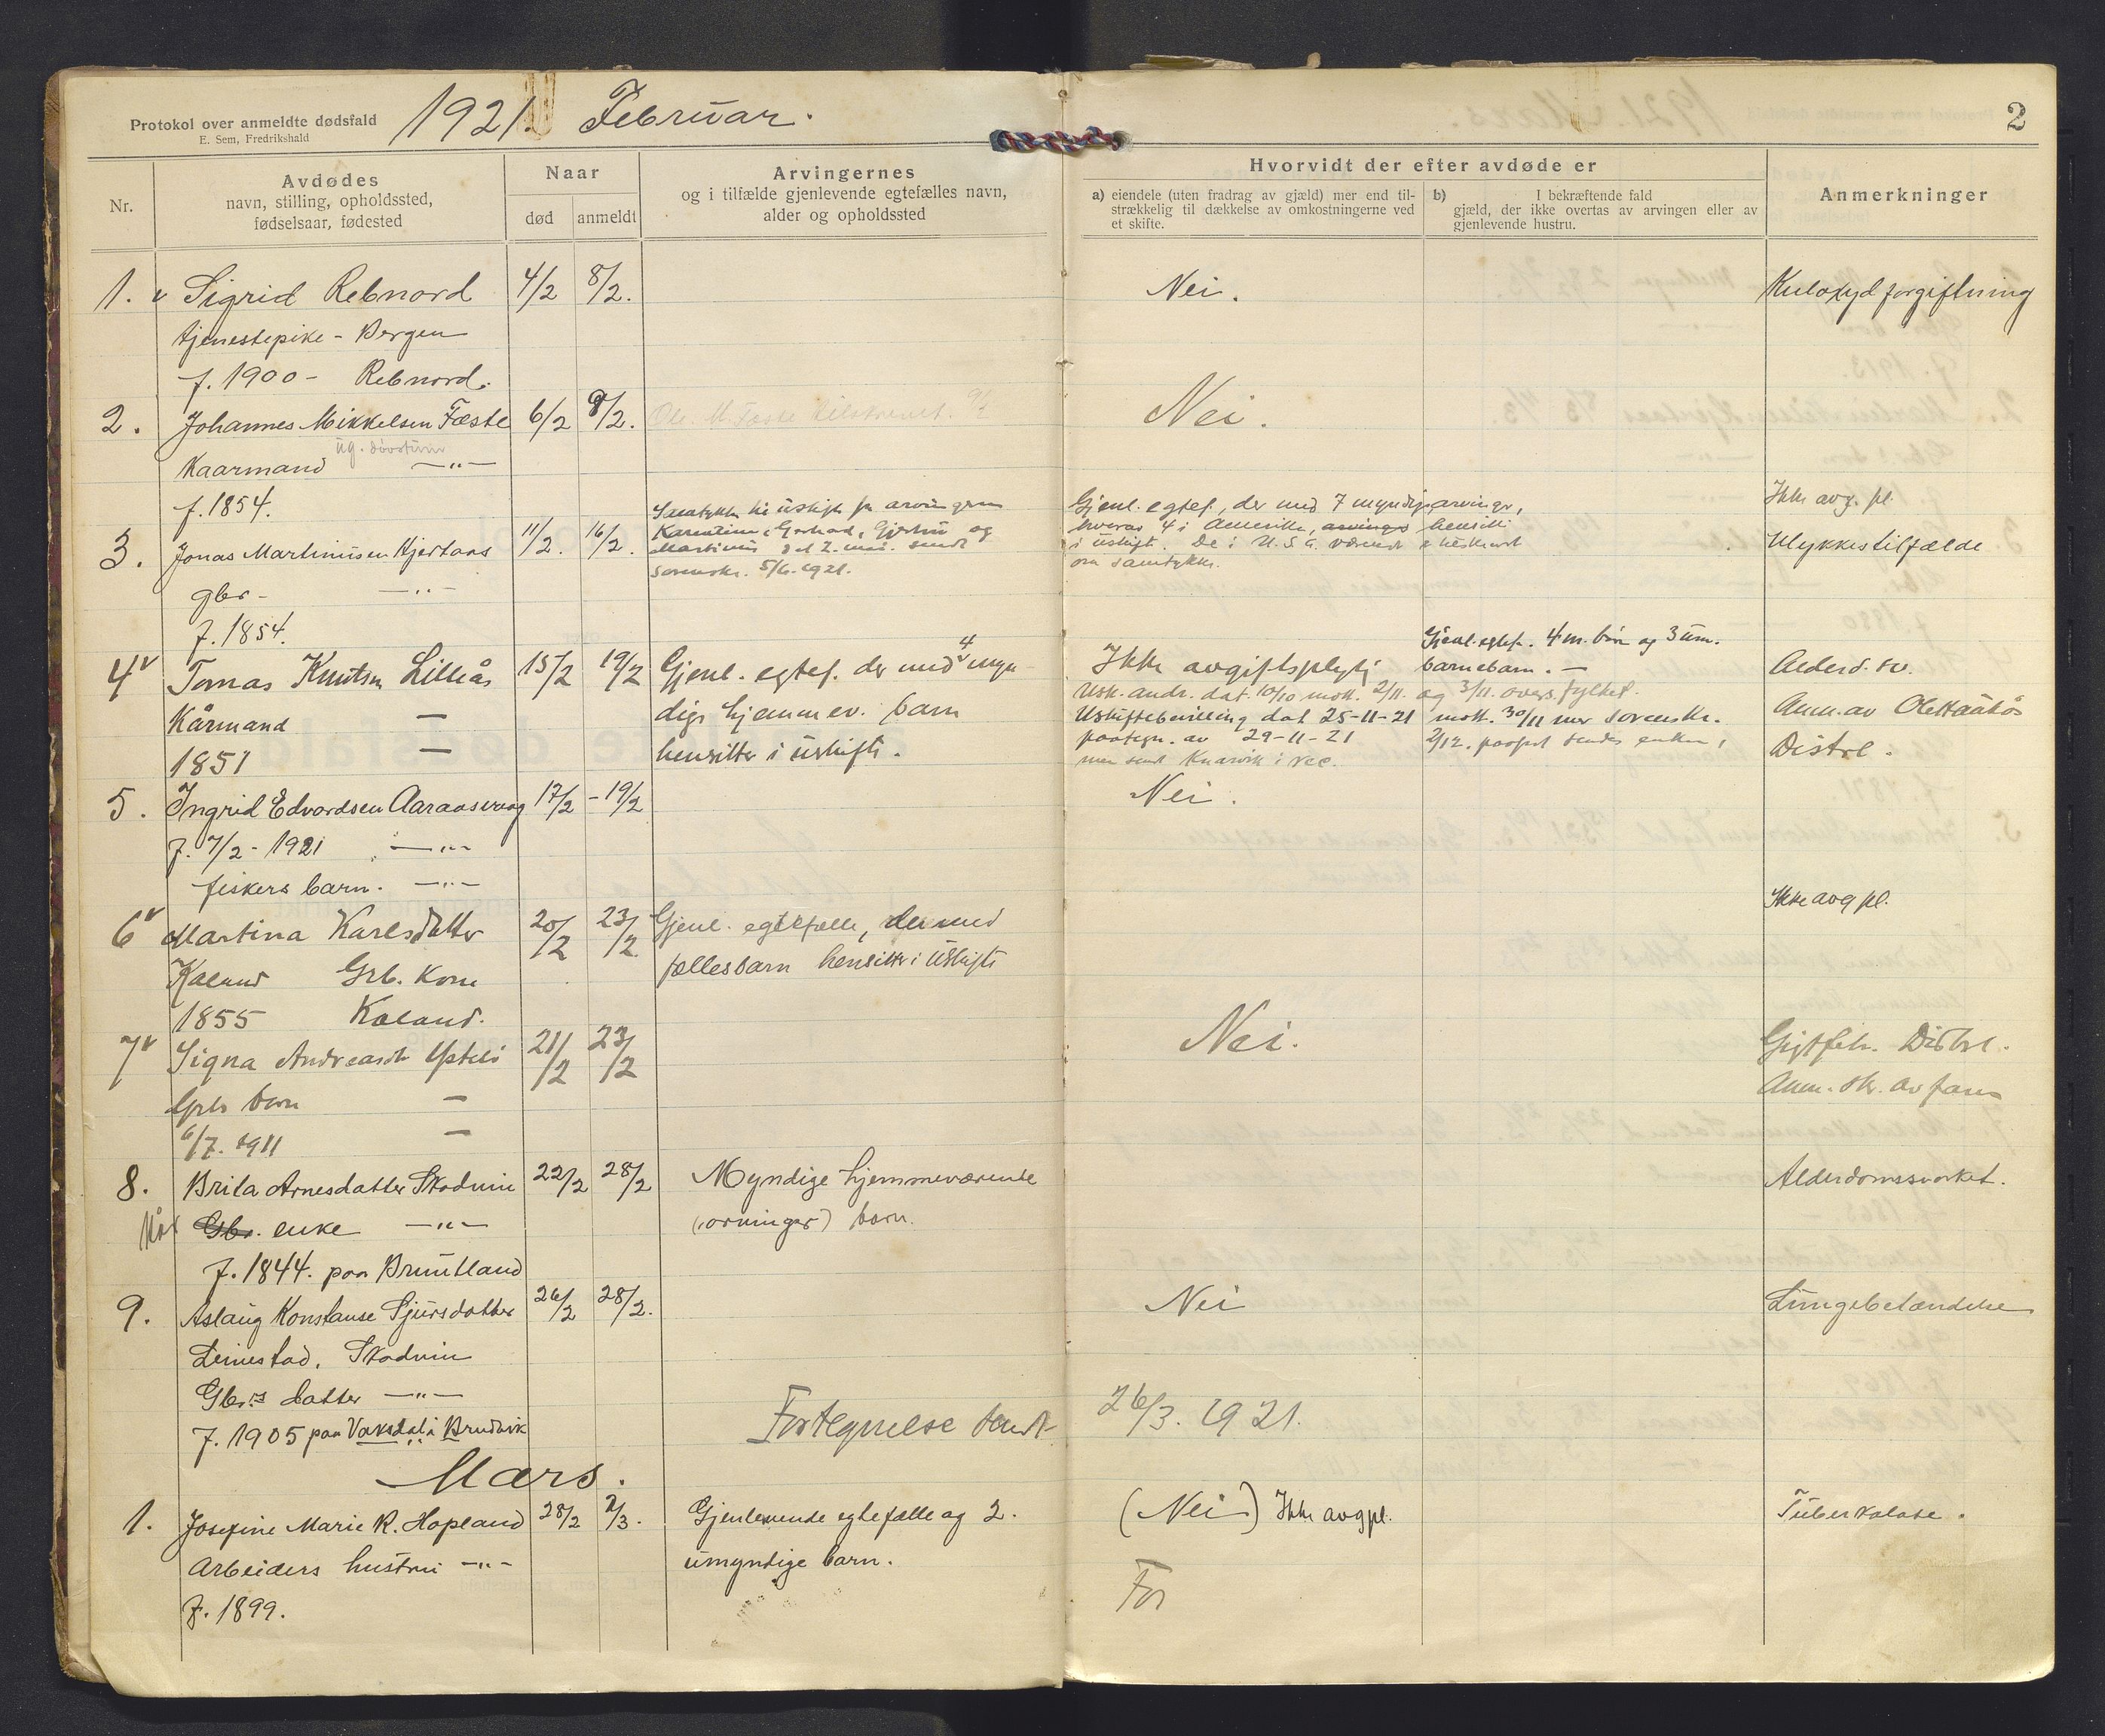 Protokol over anmeldte dødsfald
E. Sem, Fredrikshald
1921. Februar.
2
Nr.
Avdødes
navn, stilling, opholdssted,
fødselsaar, fødested
Naar
død
anmeldt
Arvingernes
og i tilfælde gjenlevende egtefælles navn,
alder og opholdssted
Hvorvidt der efter avdøde er
a) eiendele (uten fradrag av gjæld) mer end til-
strækkelig til dækkelse av omkostningerne ved
et skifte.
b) I bekræftende fald
gjæld, der ikke overtas av arvingen eller av
gjenlevende hustru.
Anmerkninger
1. v Sigrid Rebnord 4/2 8/2. Nei. Kuloxyd forgiftning
tjenestepike - Bergen
f. 1900 - Rebnord.
2. Johannes Mikkelsen Fæste 6/2 9/2. Nei.
ug. døvstum
Kaarmand —"—
f. 1854.
3. Jonas Martinusen Hjertaas 11/2. 16/2.
gbr. —"—
f. 1854.
Samtykke til uskifte fra arvingerne
Martinus
sorenskr. 5/6. 1921.
Gjenl. egtef., der med 7 myndige arvinger,
hvorav 4 i Amerika, arvinger hensitter
i uskifte. De i U.S.A. værende
om samtykke.
Ikke avg. pl.
Ulykkestilfælde
4 v Tomas Knutsen Lilleås 15/2 19/2 Gjenl. egtef. der med 4 myn-
Kårmand — dige hjemmev. barn
1851 — hensitter i uskifte.
Ikke avgiftspligtig
Gjenl. egtef. 4 m. børn og 3 um.
barnebarn. —
Usk. andr. dat. 10/10 mott. 2/11. og 3/11. overs. fylket.
Uskiftebevilling dat 25-11-21 mott. 30/11 mer sorenskr.
paategn. av 29-11-21 2/12.
Alderd. sv.
Anm. av
Distrl.
5. Ingrid Edvardsen Aaraasvaag 17/2 - 19/2 Nei.
f. 7/2 - 1921 —"—
fiskers barn. —"—
6 v Martina Karlsdatter 20/2 23/2 Gjenl. egtefælle, der med
Kaland Grb. kone fællesbarn hensitter i uskifte
1855 Kaland.
Ikke avg pl.
7 v Signa Andreasdt 21/2 23/2 Nei. Gigtfeb. Distrl.
Grbr barn — Anm. skr. av faren
6/7. 1911 —
8. Brita Arnesdatter Skodvin 22/2 28/2 Myndige hjemmeværende Alderdomssvaket.
Kår Gbr. enke —"— (arvinger) barn.
f. 1844. paa Bruntland
9. Aslaug Konstanse Sjursdatter 26/2 28/2. Nei Lungebetændelse
Leinestad, Skodvin
Gbr.s datter —"—
f. 1905 paa Vaksdal i Bruvik
Fortegnelse sendt 26/3. 1921.
Mars.
1. Josefine Marie R. Hopland 28/2 2/3. Gjenlevende egtefælle og 2. (Nei) Ikke avg pl. Tuberkulose.
Arbeiders hustru —"— umyndige barn.
f. 1899.
For